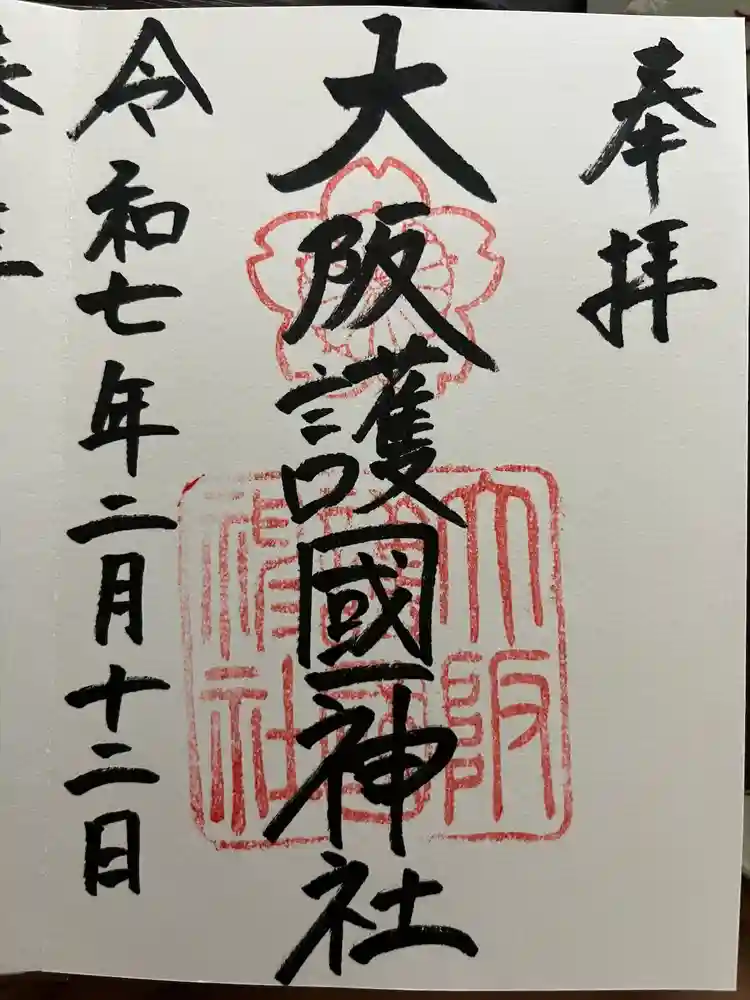 奉拝
大阪護國神社
大阪護國神社
令和七年二月十二日